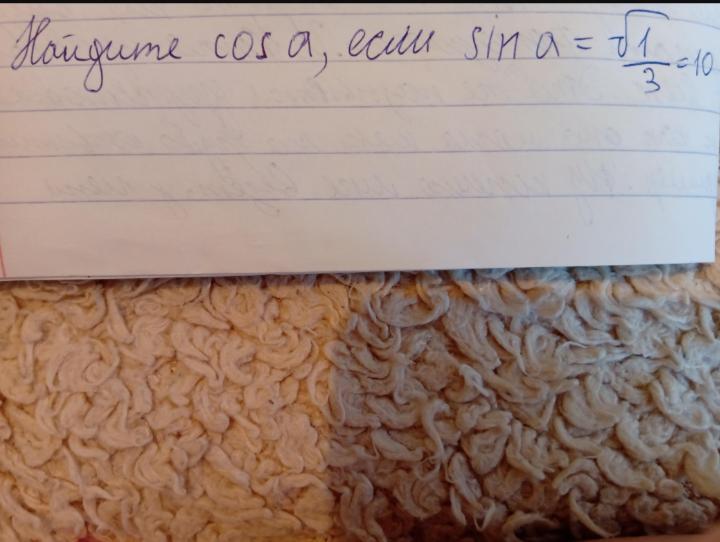 Найдите cos a, если sin a = √1/3 = 10